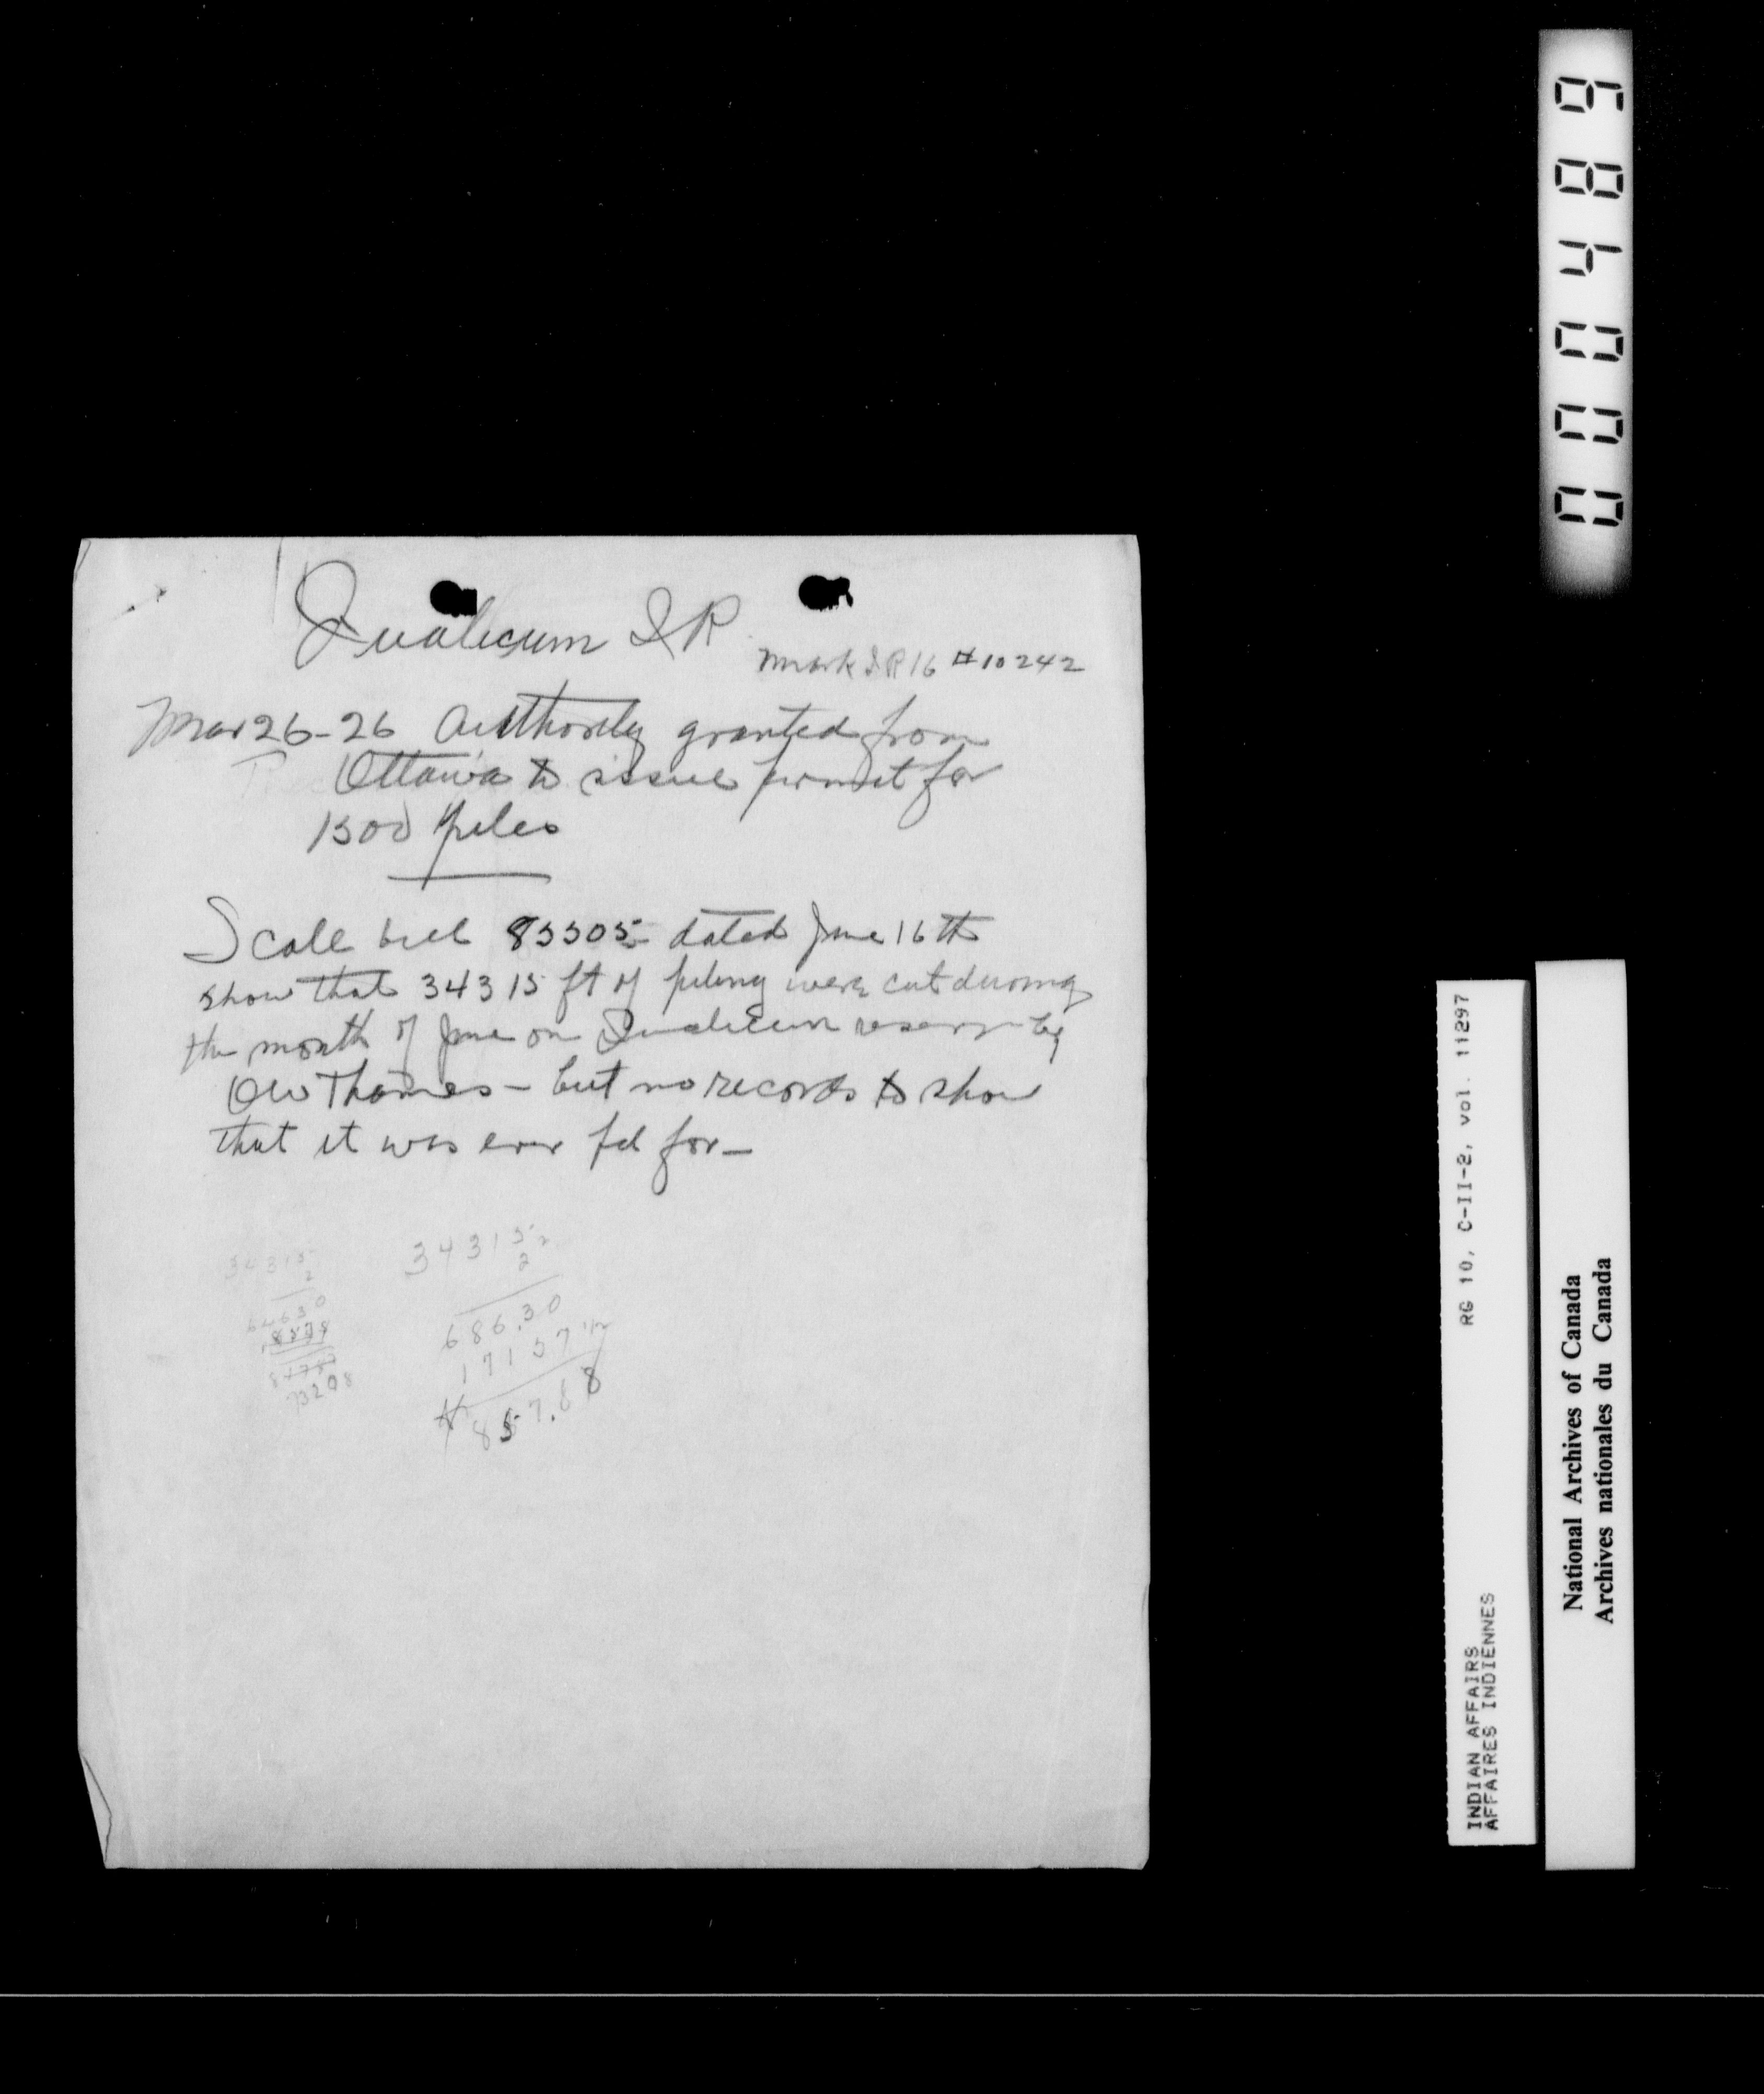 Qualicum I R
Mark I R 16 # 10242
Mar 26-26 Authority granted from
Ottawa to issue permit for
1500 piles
Scale bill 85505 dated June 16th
show that 34315 ft of piling were cut during
the month of June on Qualicum reserve by
Thames - but no records to show
that it was ever pd for -
34315
2
73208
34315 2
2
686.30
17157 1/2
857.88
000486
RG 10, C-II-2, vol. 11297
INDIAN AFFAIRS
AFFAIRES INDIENNES
National Archives of Canada
Archives nationales du Canada